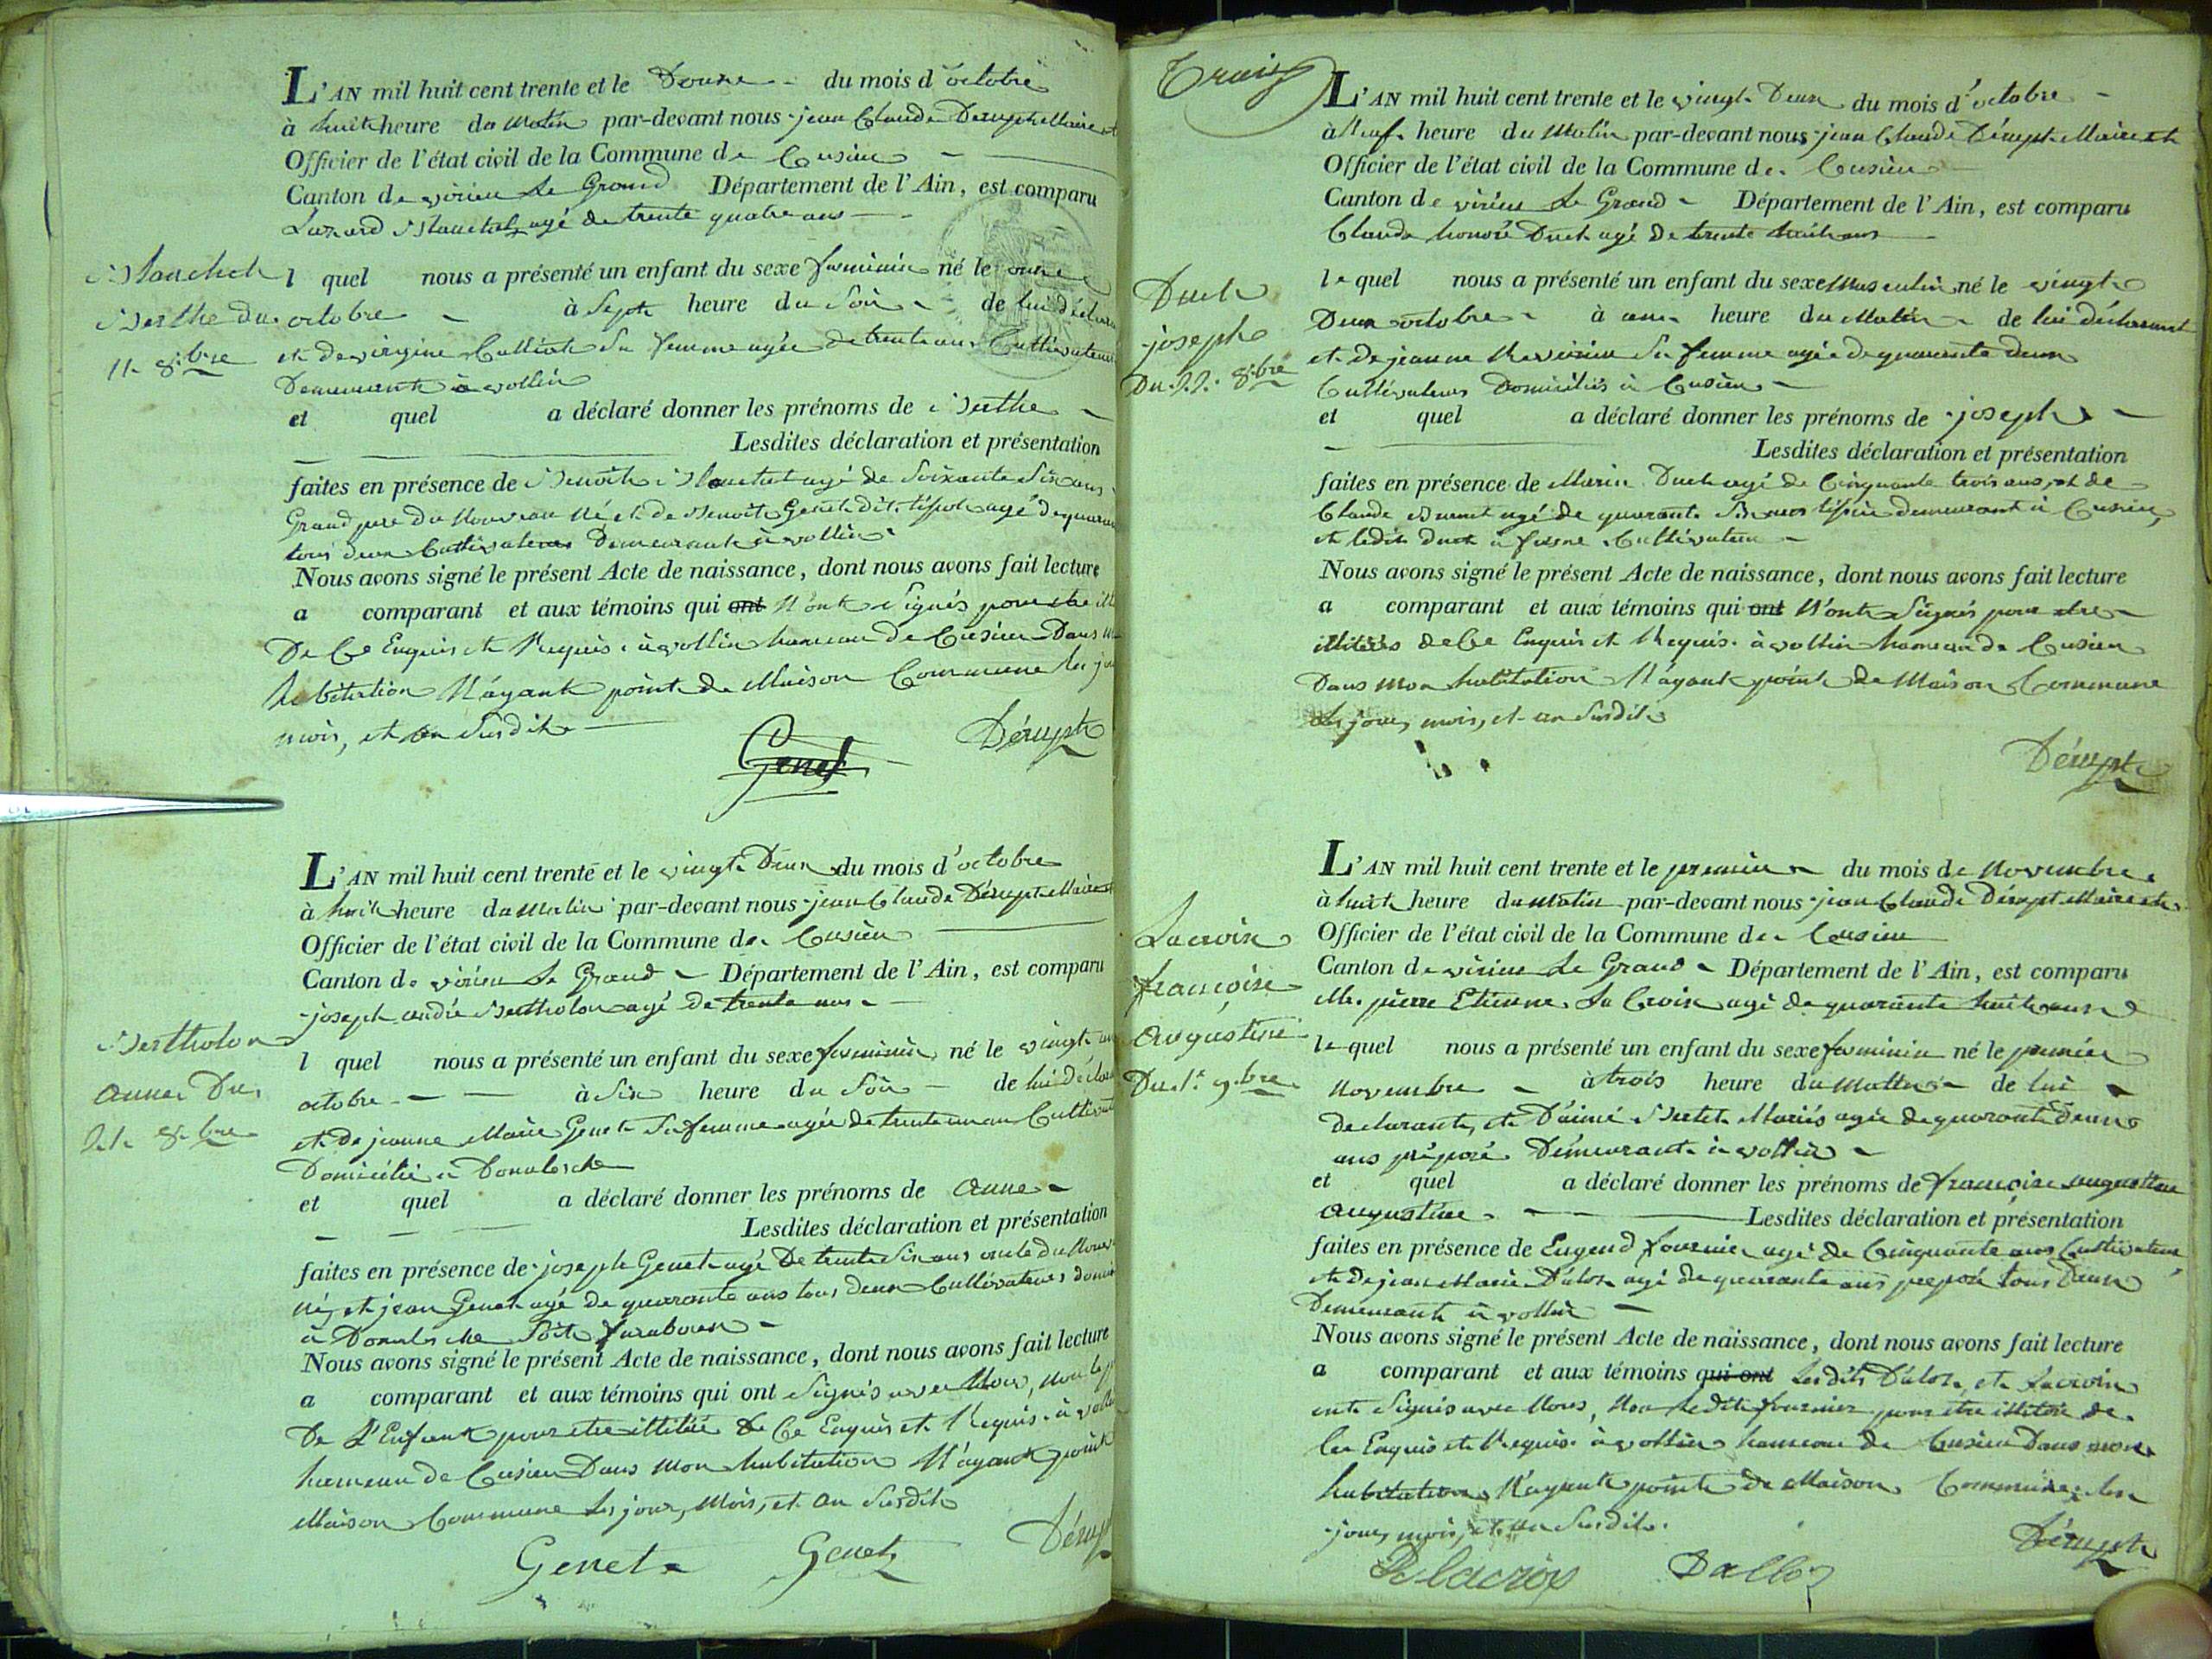 L'AN mil huit cent trente et le Douze du mois d'octobre
à huit heure du Matin par-devant nous jean Claude Dérupt Maire et
Officier de l'état civil de la Commune de Cusieu
Canton de virieu Le Grand Département de l'Ain, est comparu
agé de trente quatre ans
Blanchet
Berthe du
11 8.bre
l quel nous a présenté un enfant du sexe feminin né le onze
octobre à Sept heure du Soir de lui déclarant
et de virgine Sa femme agée de trente ans Cultivateurs
Demeurant à vollin
et quel a déclaré donner les prénoms de Berthe
Lesdites déclaration et présentation
faites en présence de Benoit Blanchet agé de Soixante Six ans
Grand pere du Nouveau Né et de Benoit Genet dit agé de
tous deux Cultivateurs Demeurant à vollin
Nous avons signé le présent Acte de naissance, dont nous avons fait lecture
a comparant et aux témoins qui ont N'ont Signés pour etre
De Ce Enquis et Requis à vollin hameau de Cusieu Dans
habitation N'ayant point de Maison Commune les
mois, et an Susdits
Genet Dérupt
L'AN mil huit cent trente et le vingt Deux du mois d'octobre
à huit heure du Matin par-devant nous jean Claude Dérupt Maire et
Officier de l'état civil de la Commune de Cusieu
Canton de virieu Le Grand Département de l'Ain, est comparu
joseph andré Bertholon agé de trente ans
Bertholon
anne Du
21 8.bre
l quel nous a présenté un enfant du sexe feminin né le vingt un
octobre à Six heure du Soir de lui déclarant
et de jeanne Marie Genet Sa femme agée de trente un an
Domicilié a
et quel a déclaré donner les prénoms de anne
Lesdites déclaration et présentation
faites en présence de joseph Genet agé De trente Six ans oncle du Nouveau
né, et jean Genet agé de quarante ans tous deux Cultivateurs
à
Nous avons signé le présent Acte de naissance, dont nous avons fait lecture
a comparant et aux témoins qui ont Signés avec Nous, non le
De L'Enfant pour etre illitéré De Ce Enquis et Requis à
hameau de Cusieu Dans Mon habitation N'ayant point
Maison Commune les jour, Mois, et an Susdits
Genet Genet
Trois
L'AN mil huit cent trente et le vingt Deux du mois d'octobre
à Neuf heure du Matin par-devant nous jean Claude Dérupt Maire et
Officier de l'état civil de la Commune de Cusieu
Canton de virieu Le Grand Département de l'Ain, est comparu
Claude honoré Duch agé De trente huit ans
Duch
joseph
Du 22 8.bre
le quel nous a présenté un enfant du sexe Masculin né le vingt
Deux octobre à heure du Matin de lui déclarant
et de jeanne Sa femme agée de quarante deux
Cultivateurs Domiciliés à Cusieu
et quel a déclaré donner les prénoms de joseph
Lesdites déclaration et présentation
faites en présence de Marin Duch agé de Cinquante trois ans, et de
Claude agé de quarante Six ans demeurant à Cusieu
et ledit Duch à Cultivateur
Nous avons signé le présent Acte de naissance, dont nous avons fait lecture
a comparant et aux témoins qui ont N'ont Signés pour etre
illitérés de Ce Enquis et Requis à vollin hameau de Cusieu
Dans Mon habitation N'ayant point de Maison Commune
les jour, mois, et an Susdits
Dérupt
L'AN mil huit cent trente et le premier du mois de Novembre
à huit heure du Matin par-devant nous jean Claude Dérupt Maire et
Officier de l'état civil de la Commune de Cusieu
Canton de virieu Le Grand Département de l'Ain, est comparu
Mr. pierre Etienne La Croix agé de quarante huit ans
Lacroix
françoise
augustine
Du 1.r 9.bre
le quel nous a présenté un enfant du sexe feminin né le premier
Novembre à trois heure du Matin de lui
declarant, et D'aimé Mariés agée de quarante deux
ans préposé Demeurant à vollin
et quel a déclaré donner les prénoms de françoise
augustine Lesdites déclaration et présentation
faites en présence de Eugend fournier agé de Cinquante ans Cultivateur
et de jean Marie Daloz agé de quarante ans préposé tous Deux
Demeurant à vollin
Nous avons signé le présent Acte de naissance, dont nous avons fait lecture
a comparant et aux témoins qui ont Lesdits Daloz, et Lacroix
ont Signés avec Nous, Non Ledit fournier pour etre illitéré de
Ce Enquis et Requis à vollin hameau de Cusieu Dans mon
habitation N'ayant point de Maison Commune les
jour, mois, et an Susdits.
Lacroix Dalloz Dérupt